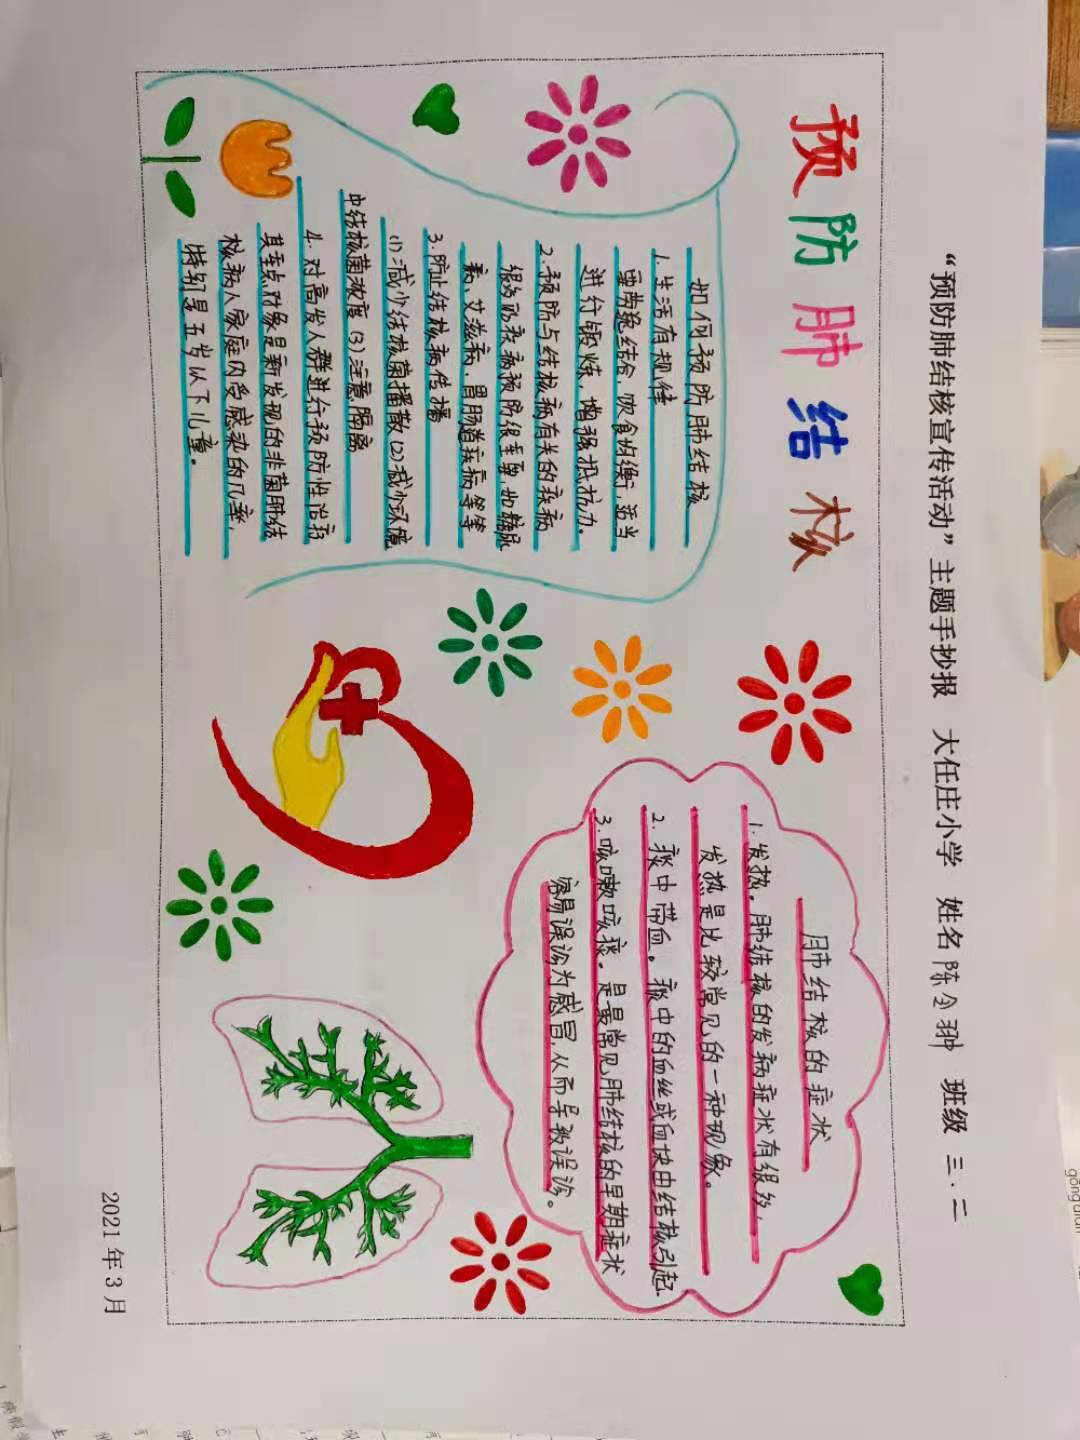 “预防肺结核宣传活动”主题手抄报 大任庄小学 姓名 陈令翀 班级 三.二
预防肺结核
如何预防肺结核
1.生活有规律
要劳逸结合,饮食均衡,适当
进行锻炼,增强抵抗力。
2.预防与结核病有关的疾病
很多的疾病预防很重要如糖尿
病,艾滋病,胃肠道疾病等等
3.防止结核病传播
(1)减少结核菌播散(2)减少环境
中结核菌浓度(3)注意隔离
4.对高发人群进行预防性治疗
其重点对象是新发现的非菌肺结
核病人家庭内受感染的几率,
特别是五岁以下儿童。
肺结核的症状
1.发热。肺结核的发病症状有很多,
发热是比较常见的一种现象。
2.痰中带血。痰中的血丝或血块由结核引起.
3.咳嗽咳痰。是最常见肺结核的早期症状
容易误诊为感冒,从而导致误诊。
2021年3月